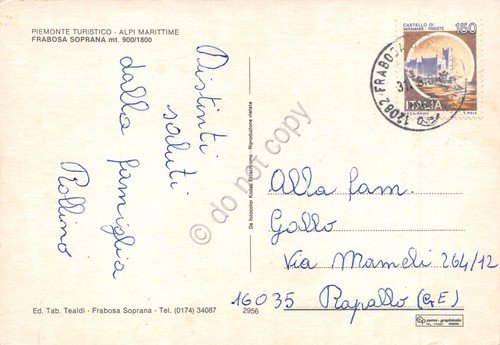 PIEMONTE TURISTICO - ALPI MARITTIME
FRABOSA SOPRANA mt. 900/1800
Distinti
saluti
dalla famiglia
Rollino
De fotocolor Kodak Ektachrome - Riproduzione vietata
CASTELLO DI
MIRAMARE - TRIESTE
150
ITALIA
12082 - FRABOSA
Alla fam.
Gallo
Via Mameli 264/12
16035 Rapallo (GE)
Ed. Tab. Tealdi - Frabosa Soprana - Tel. (0174) 34087
2956
do not copy